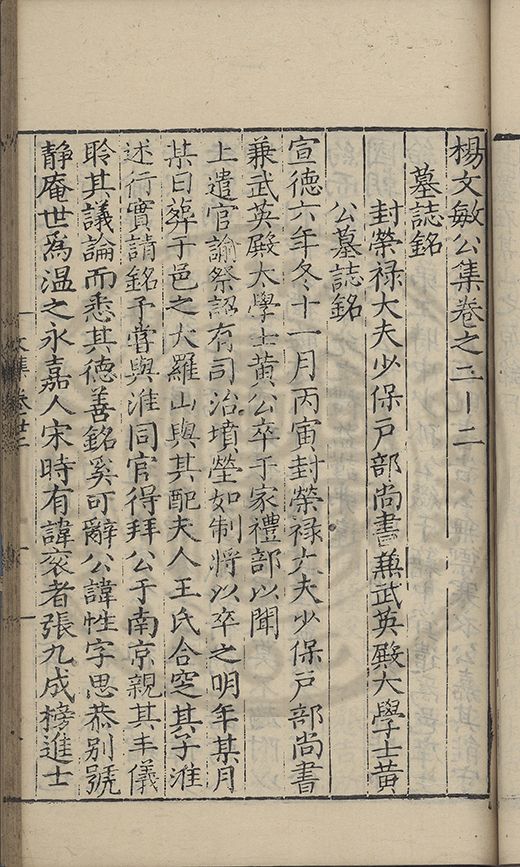 楊文敏公集卷之二十二
墓誌銘
封榮禄大夫少保戸部尚書兼武英殿大學士黄
公墓誌銘
宣德六年冬十一月丙寅封榮禄大夫少保戸部尚書
兼武英殿大學士黄公卒于家禮部以聞
上遣官諭祭詔有司治墳塋如制將以卒之明年某月
某日葬于邑之大羅山與其配夫人王氏合窆其子淮
述行實請銘予嘗與淮同官得拜公于南京親其丰儀
聆其議論而悉其德善銘奚可辭公諱性字思恭别號
静庵世爲温之永嘉人宋時有諱衮者張九成榜進士